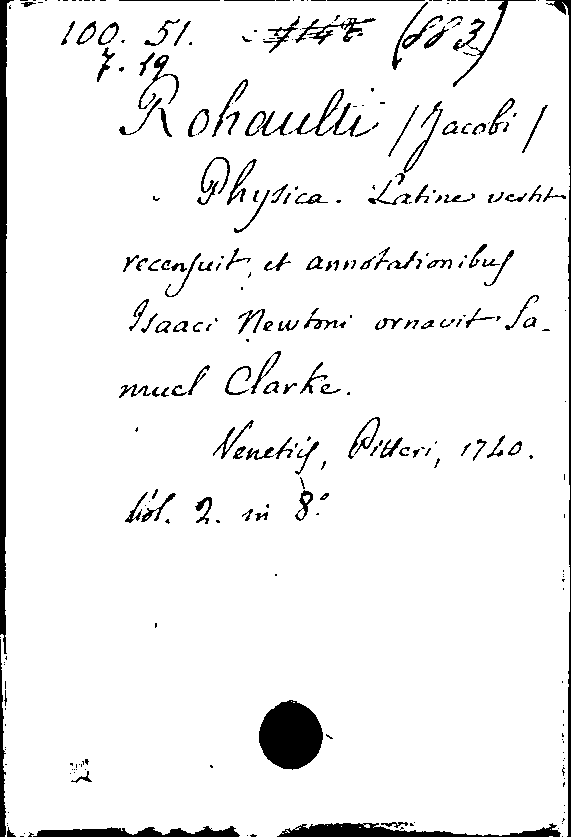 100. 51. (883)
7. 19
Rohaulti /Jacobi/
Physica. Latine vertit
recensuit, et annotationibus
Isaaci Newtoni ornavit Sa-
muel Clarke.
Venetiis, Pitteri, 1740.
Vol. 2. in 8.º